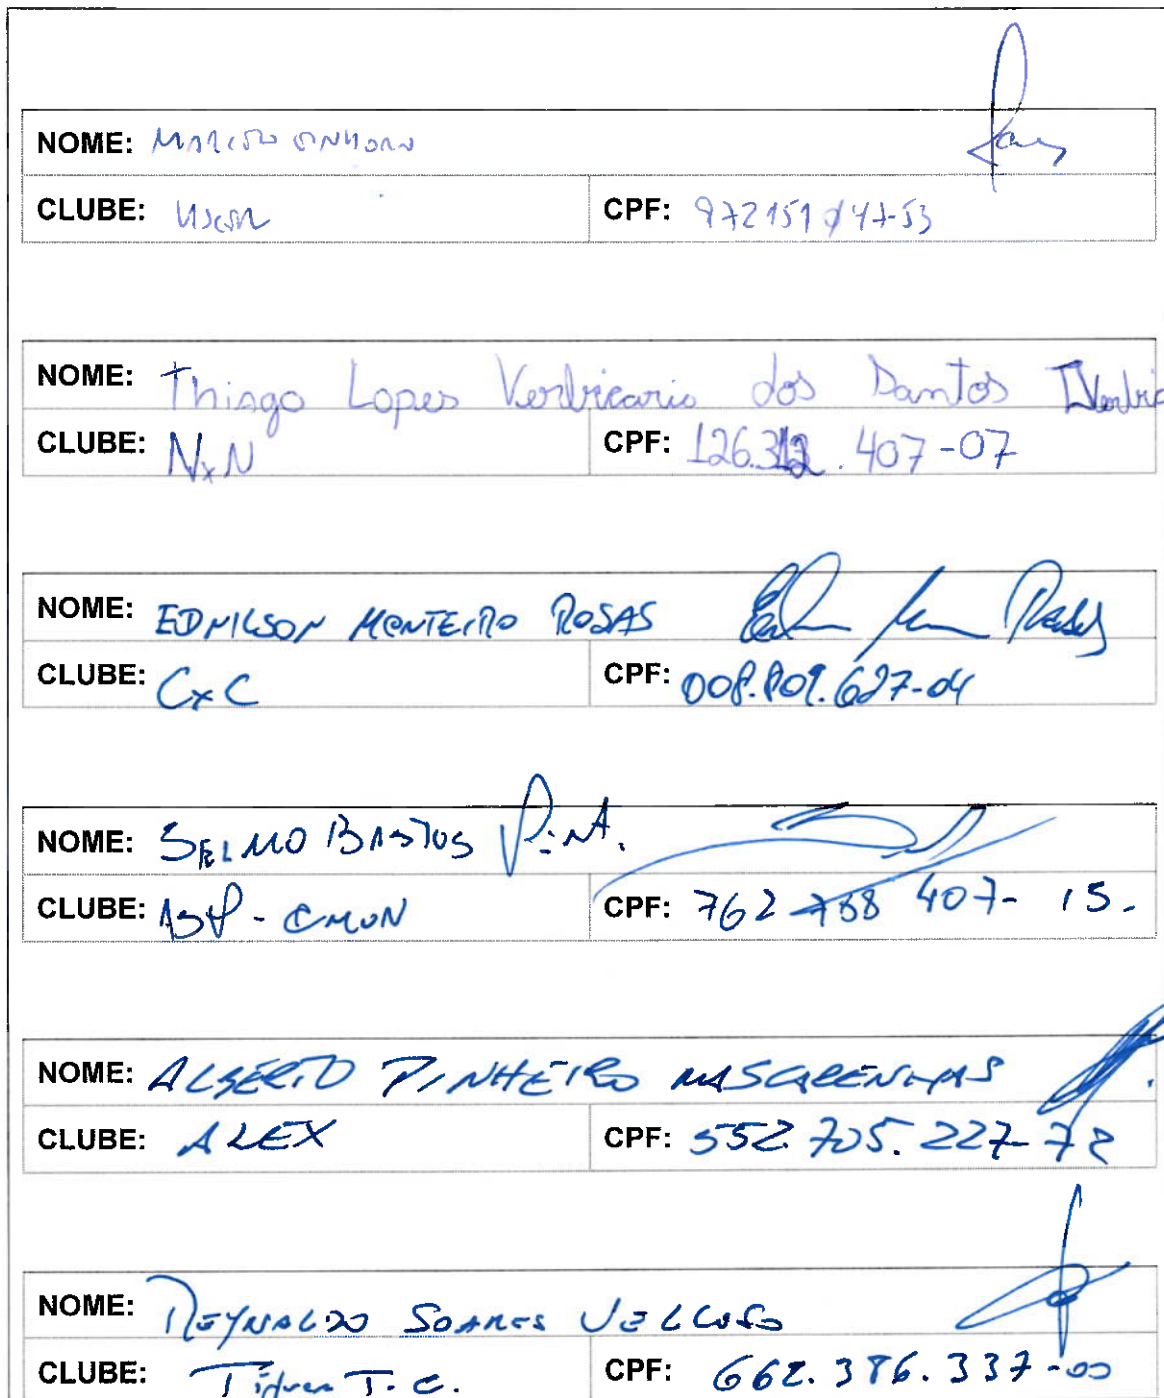 NOME: MARCELO EINHORN
CLUBE: CPF: 972151747-53
NOME: Thiago Lopes Verbicario dos Santos
CLUBE: NxN CPF: 126.312.407-07
NOME: EDNILSON MONTEIRO ROSAS
CLUBE: CxC CPF: 008.809.627-04
NOME: SELMO BASTOS
CLUBE: CPF: 762 788 407-15.
NOME: ALBERTO PINHEIRO MASCARENHAS
CLUBE: ALEX CPF: 552.705.227-72
NOME: REYNALDO SOARES VELLOSO
CLUBE: Tijuca T.C. CPF: 662.386.337-00